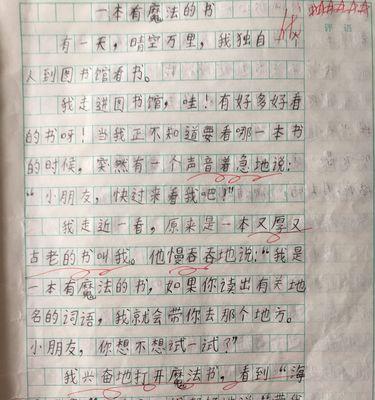 一本有魔法的书
有一天，晴空万里，我独自一个
人到图书馆看书。
我走进图书馆，哇！有好多好看
的书呀！当我正不知道要看哪一本书
的时候，突然有一个声音着急地说：
“小朋友，快过来看我吧！”
我走近一看，原来是一本又厚又
古老的书叫我。他慢吞吞地说：“我是
一本有魔法的书，如果你读出有关地
名的词语，我就会带你去那个地方。
小朋友，你想不想试一试？”
我兴奋地打开魔法书，看到“海
评语